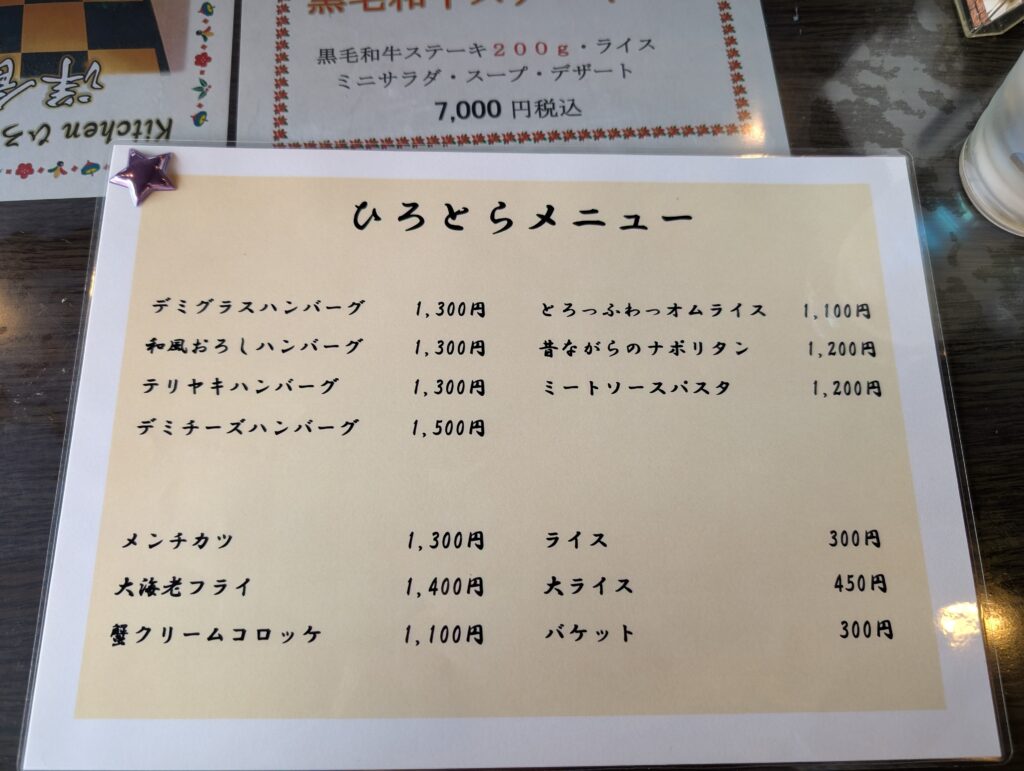 黒毛和牛ステーキ
黒毛和牛ステーキ200g・ライス
ミニサラダ・スープ・デザート
7,000円税込
Kitchen ひろ
ひろとらメニュー
デミグラスハンバーグ 1,300円
和風おろしハンバーグ 1,300円
テリヤキハンバーグ 1,300円
デミチーズハンバーグ 1,500円
とろっふわっオムライス 1,100円
昔ながらのナポリタン 1,200円
ミートソースパスタ 1,200円
メンチカツ 1,300円
大海老フライ 1,400円
蟹クリームコロッケ 1,100円
ライス 300円
大ライス 450円
バケット 300円